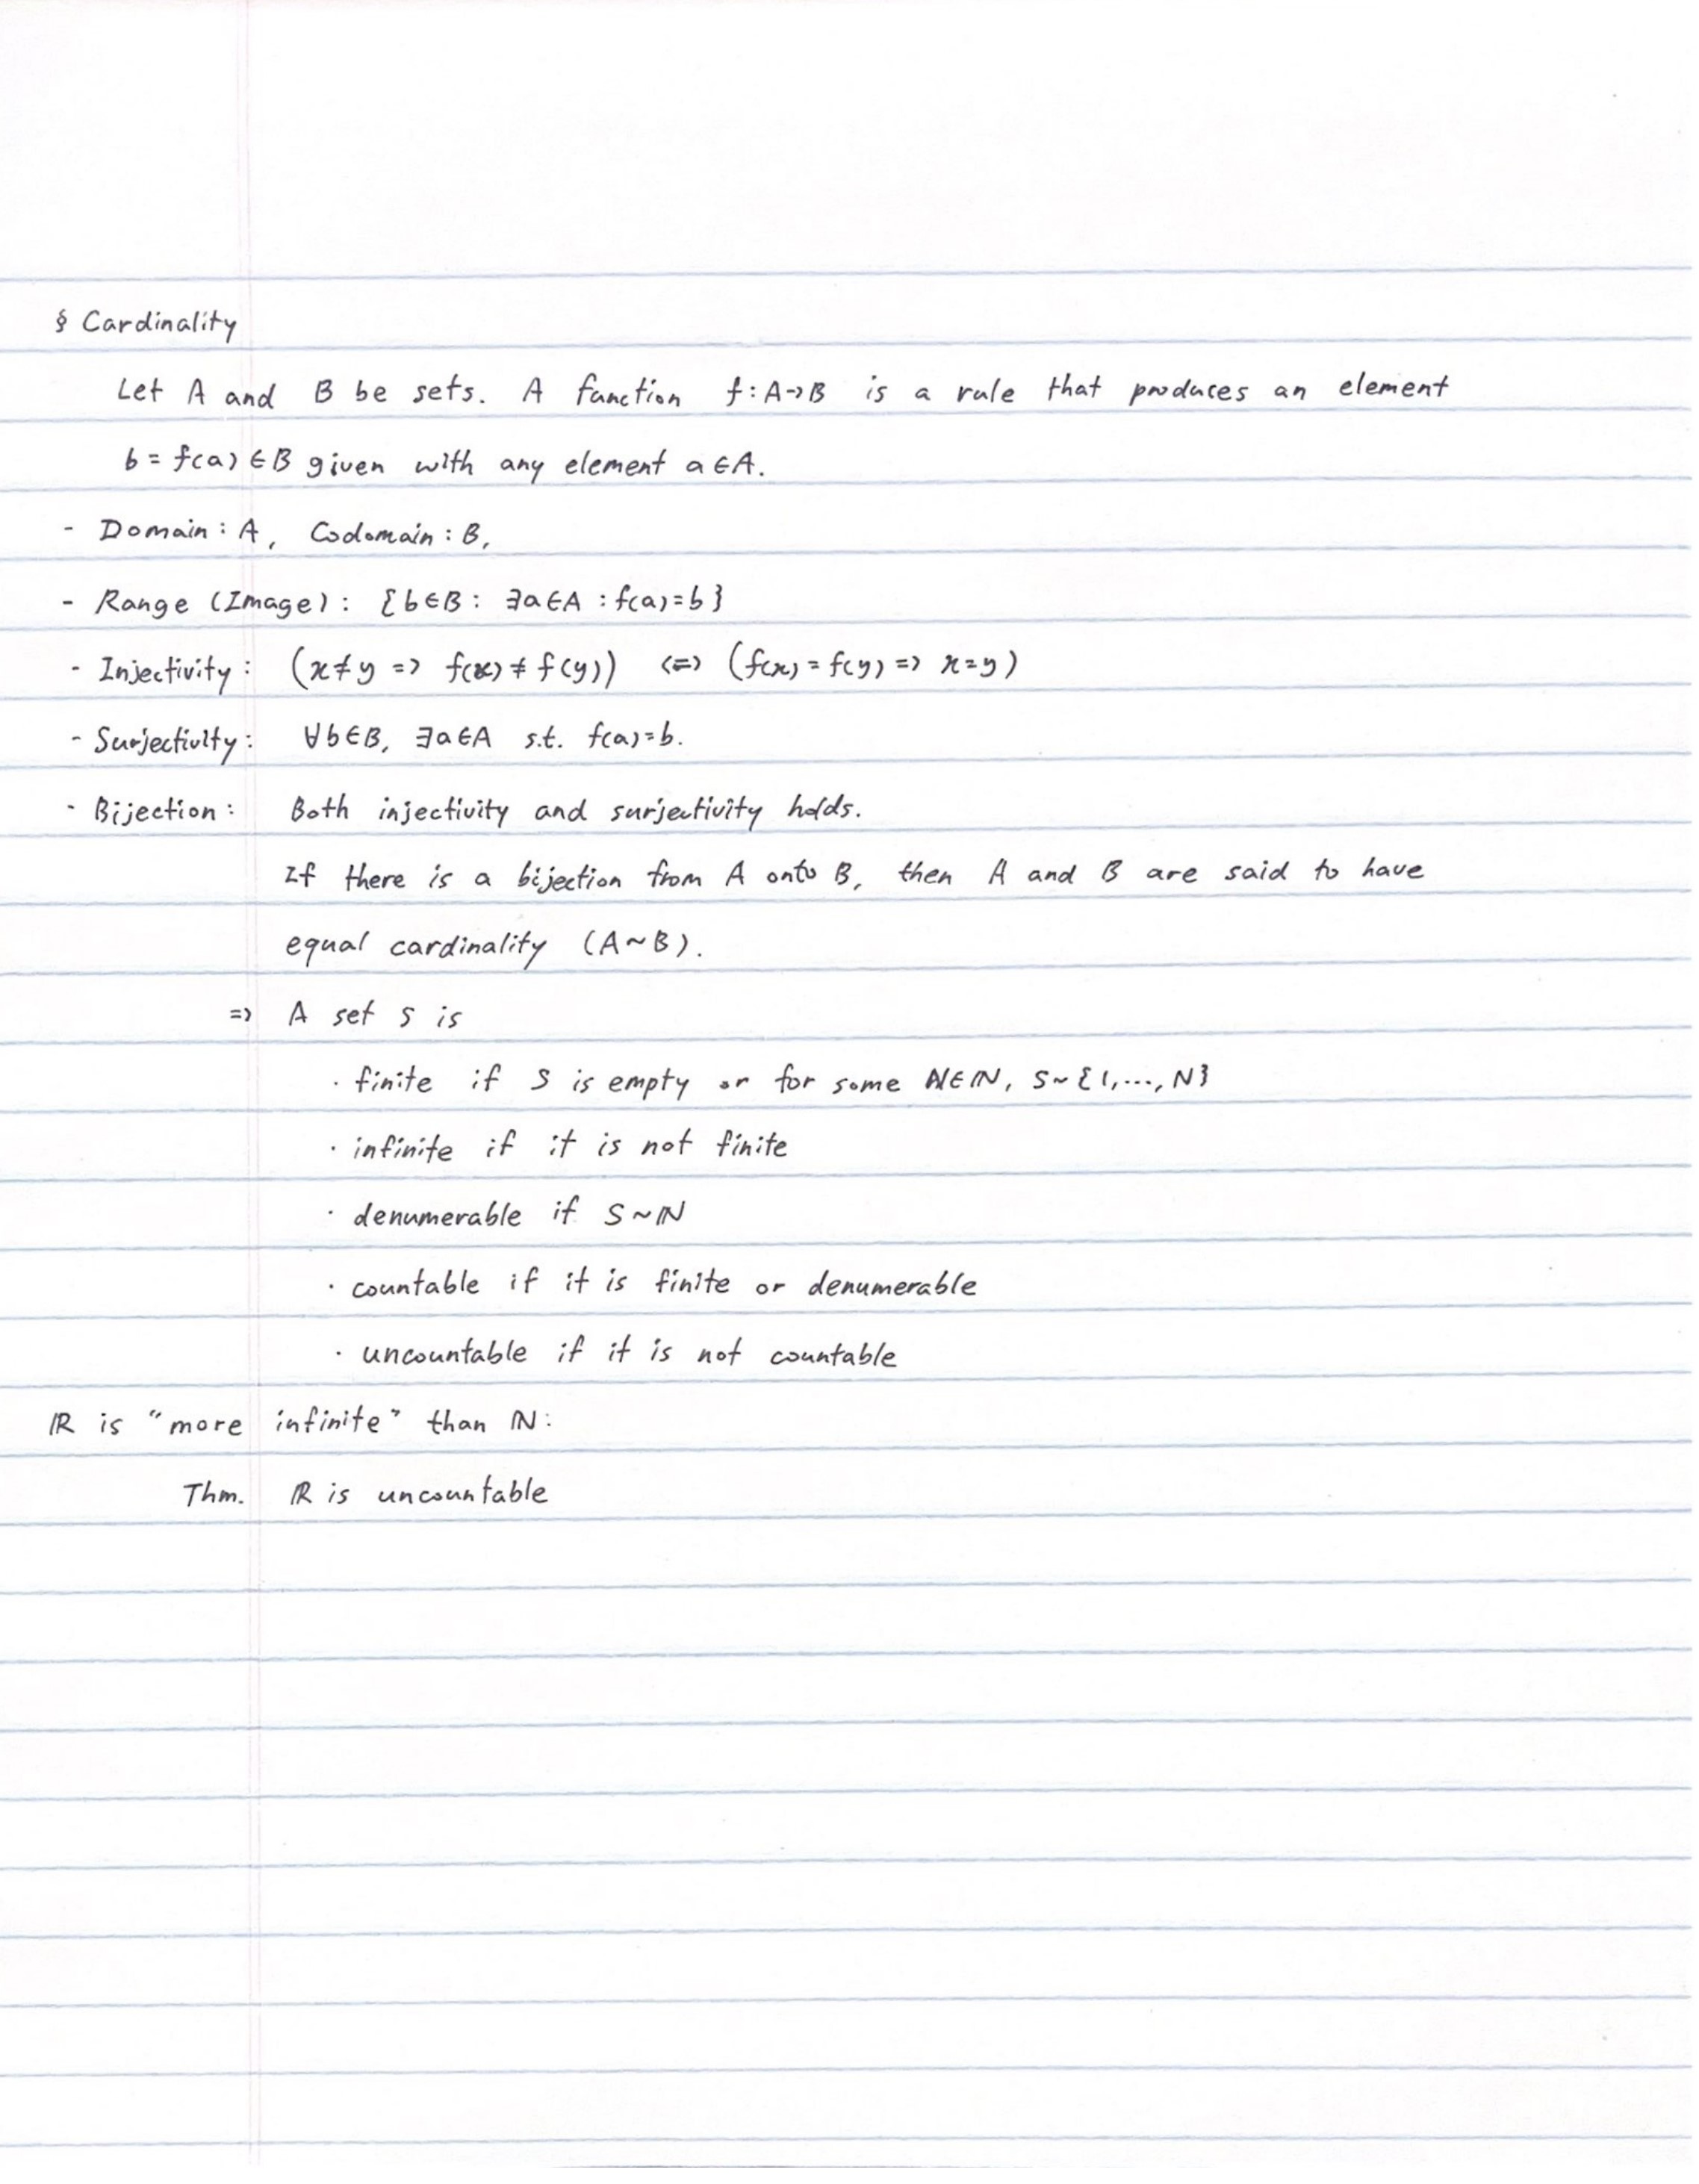 § Cardinality
Let A and B be sets. A function f: A→B is a rule that produces an element
b = f(a) ∈ B given with any element a ∈ A.
- Domain : A, Codomain : B,
- Range (Image) : {b∈B : ∃a∈A : f(a)=b}
- Injectivity : (x≠y => f(x) ≠ f(y)) <=> (f(x) = f(y) => x=y)
- Surjectivity : ∀b∈B, ∃a∈A s.t. f(a)=b.
- Bijection : Both injectivity and surjectivity holds.
If there is a bijection from A onto B, then A and B are said to have
equal cardinality (A~B).
=> A set S is
· finite if S is empty or for some N∈ℕ, S~{1,..., N}
· infinite if it is not finite
· denumerable if S~ℕ
· countable if it is finite or denumerable
· uncountable if it is not countable
ℝ is "more infinite" than ℕ:
Thm. ℝ is uncountable